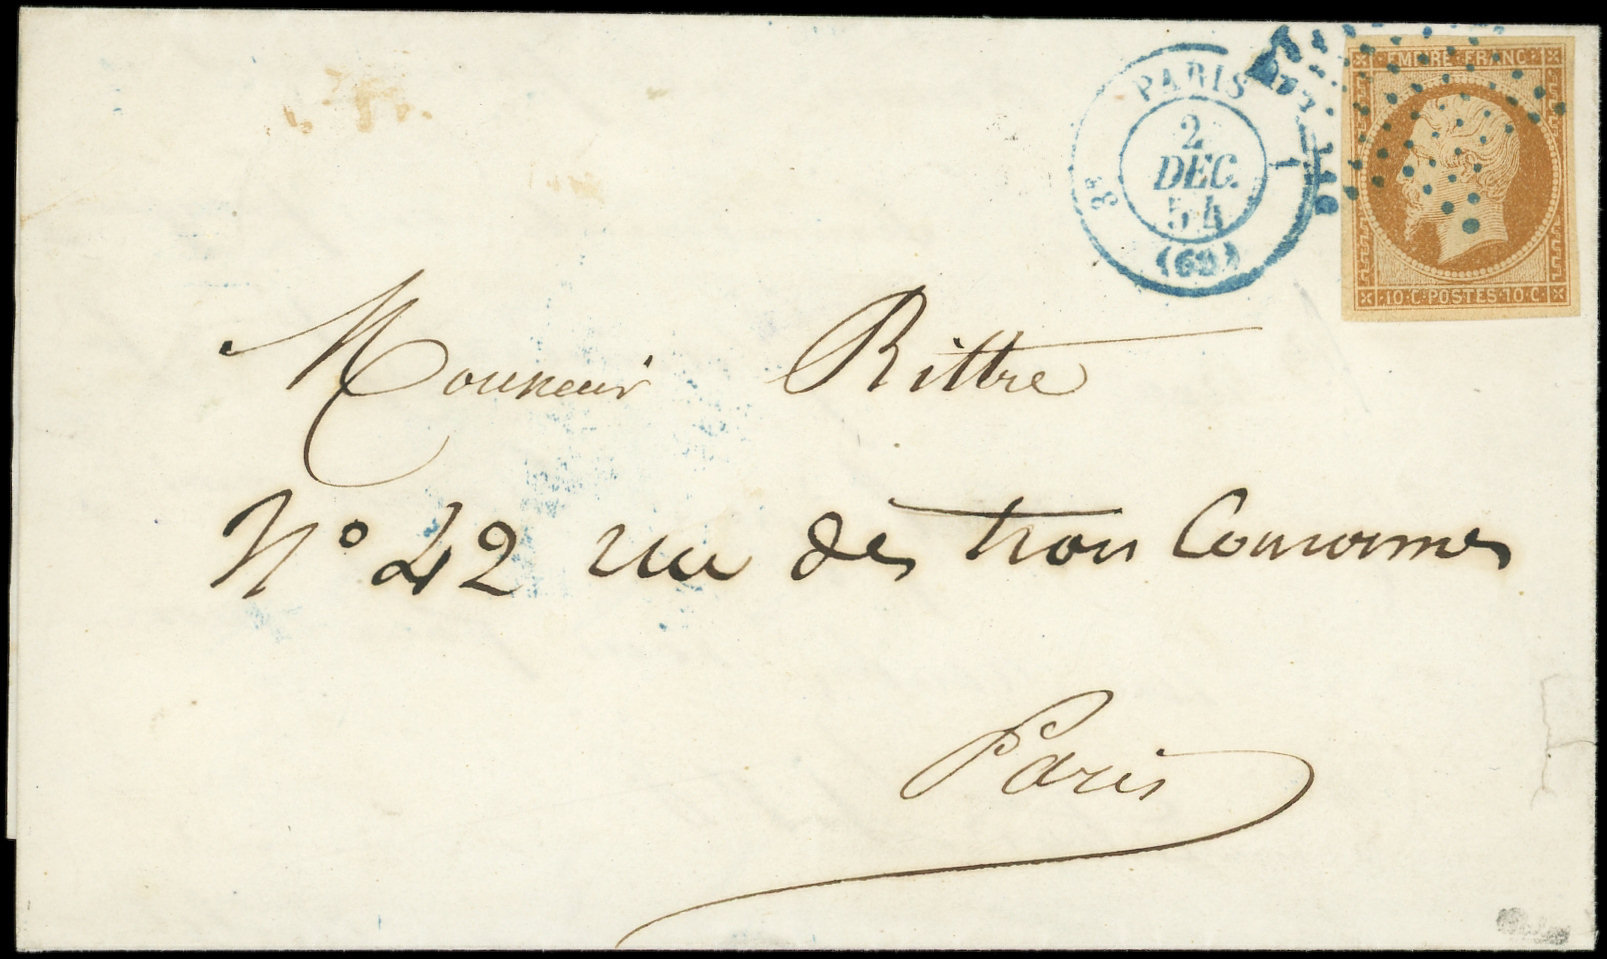 PARIS
2
DEC.
54
(60)
3e
1
EMPIRE FRANC
10 C POSTES 10 C
Monsieur Rittre
N° 42 rue des trois Couronnes
Paris